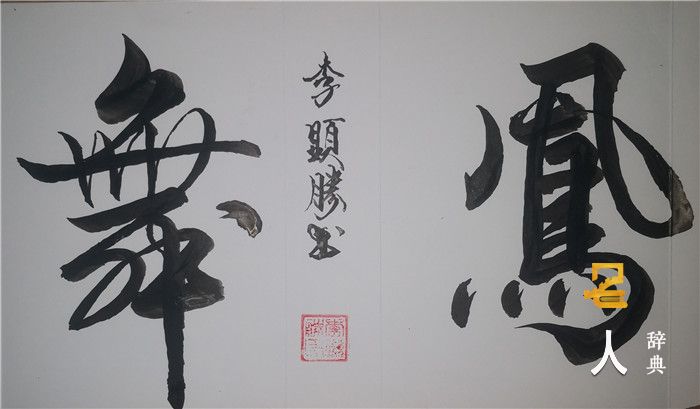 鳳
舞
李顕勝书
名人
辞典